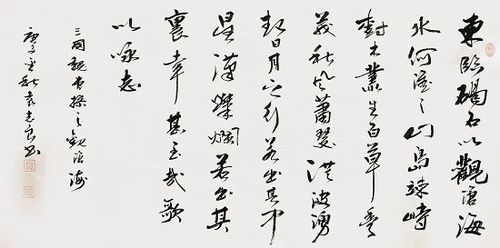 東臨碣石以觀滄海
水何澹々山島竦峙
樹木叢生百草豐
茂秋風蕭瑟洪波湧
起日月之行若出其中
星漢燦爛若出其
裏幸甚至哉歌
以詠志
三國魏曹操之觀滄海
庚子秋袁志良書